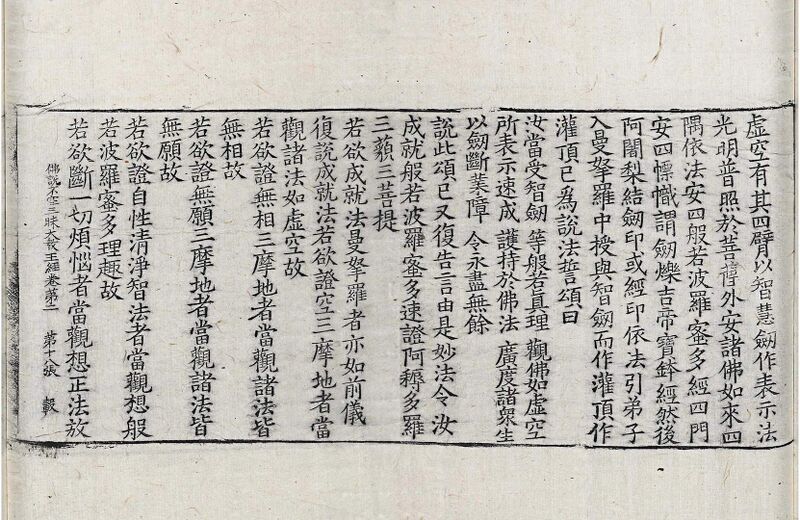 虛空有其四臂以智慧劒作表示法
光明普照於菩薩外安諸佛如來四
隅依法安四般若波羅蜜多經四門
安四幖幟謂劒爍吉帝寶鉢經然後
阿闍梨結劒印或經印依法引弟子
入曼拏羅中授與智劒而作灌頂作
灌頂已爲說法誓頌曰
汝當受智劒 等般若真理 觀佛如虛空
所表示速成 護持於佛法 廣度諸衆生
以劒斷業障 令永盡無餘
說此頌已又復告言由是妙法令汝
成就般若波羅蜜多速證阿耨多羅
三藐三菩提
若欲成就法曼拏羅者亦如前儀
復說成就法若欲證空三摩地者當
觀諸法如虛空故
若欲證無相三摩地者當觀諸法皆
無相故
若欲證無願三摩地者當觀諸法皆
無願故
若欲證自性清淨智法者當觀想般
若波羅蜜多理趣故
若欲斷一切煩惱者當觀想正法放
佛說不空三昧大教王經卷第二 第十八張 轂